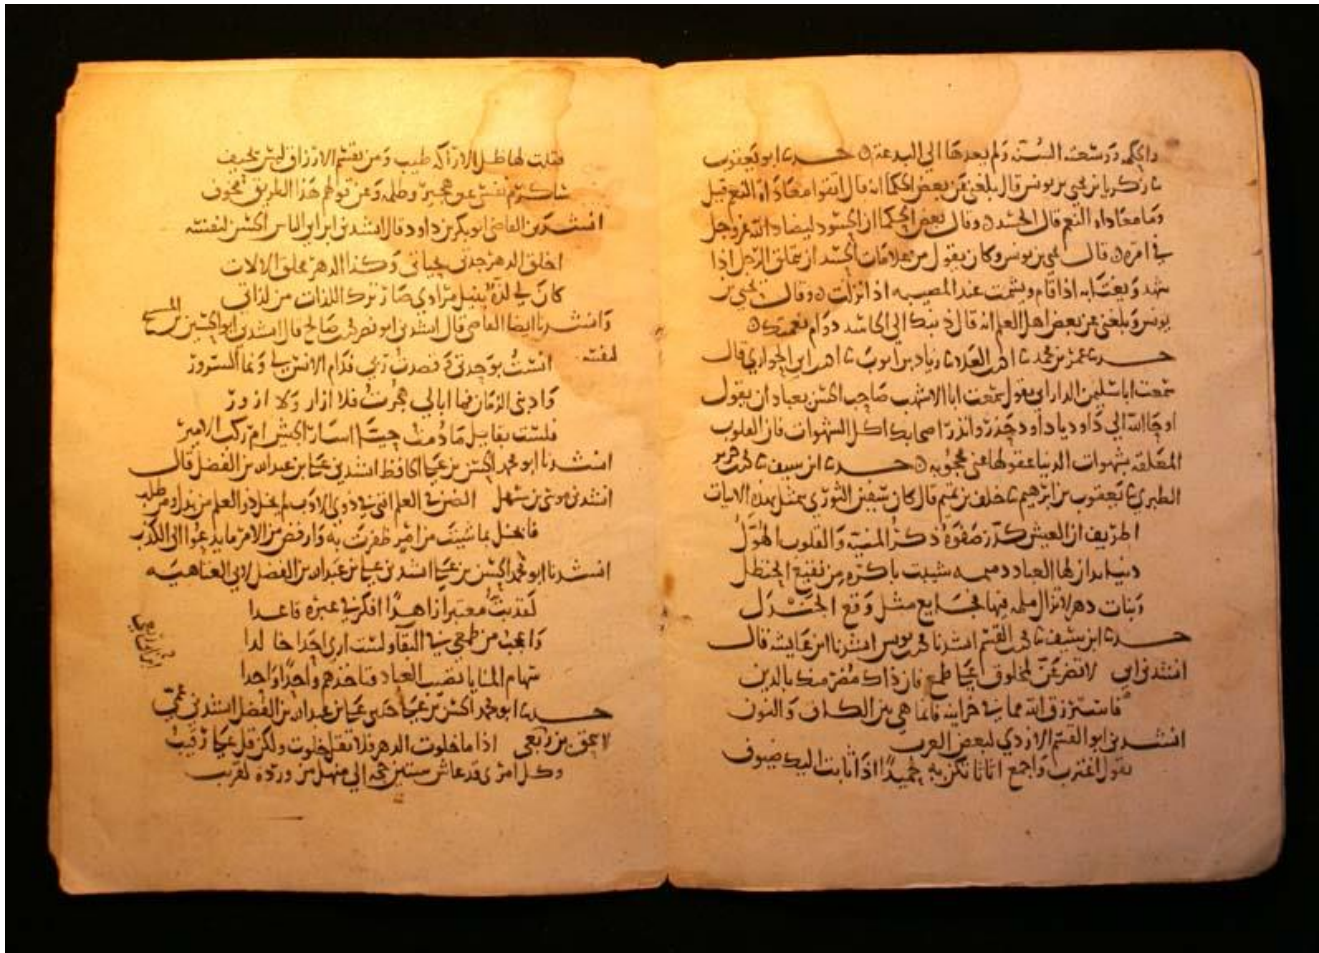 ووسعته السنة ولم يعدها الى البدعة حدثنا ابو يعقوب
زكريا بن يحيى بن يونس قال بلغني عن بعض الحكما انه قال اتقوا معاداه النعم قيل
وما معاداه النعم قال الحسد وقال بعض الحكما ان الحسود ليضاد الله عز وجل
في امره قال يحيى بن يونس وكان يقول من علامات الحسد ان يتملق الرجل اذا
شهد ويغتابه اذا قام ويشمت عند المصيبه اذا نزلت وقال يحيى بن
يونس وبلغني عن بعض اهل العلم انه قال ذنبك الى الحاسد دوام نعمتك
حدثنا عمر بن محمد زياد بن ايوب ابن ابي الحواري قال
سمعت ابا سليمن الداراني يقول سمعت ابا الاشهب صاحب الحسن يقول
اوحى الله الى داود يا داود حذر وانذر اصحابك اكل الشهوات فان القلوب
المعلقه بشهوات الدنيا عقولها عني محجوبه حدثنا ابن سيف
الطبري يعقوب بن ابرهيم خلف بن تميم قال كان سفين الثوري يتمثل بهذه الابيات
اطريف ان العيش كدر صفوه ذكر المنية والقلوب الهول
دنيا تداولها العباد ذميمه شيبت باكره من نقيع الحنظل
وبنات دهر لا تزال ملمه فيها فجايع مثل وقع الجندل
حدثنا ابن سيف القسم انشدنا يونس انشدنا ابن عايشه قال
انشدني ابي لا تضرعن لمخلوق على طمع فان ذاك مضر منك بالدين
فاسترزق الله مما في خزاينه فانما هي بين الكاف والنون
انشدني ابو القسم الازدي لبعض العرب
يقول اغترب واجمع اثاثا تكن به حميدا اذا نابت اليك ضيوف
فقلت لها ظل الاراكه طيب ومن يقسم الارزاق ليس يحيف
ساكرم نفسي عن وظلمه وعن قولهم هذا الطريق مخوف
انشدني القاضي ابو بكر بن داود قال انشدني ابن ابي الحسن لنفسه
اخلق الدهر جدتي بحياتي وكذا الدهر مخلق الالات
كان لي لذة بنيل مرادي صار ترك اللذات من لذاتي
وانشدنا ايضا القاضي قال انشدني ابو نصر بن صالح قال انشدني ابو الحسين بن
لنفسه
انست بوحدتي قصدت ربي فدام الانس لي ونما السرور
وادبني الزمان فما ابالي هجرت فلا ازار ولا ازور
فلست بقايل ما دمت حيا اسار الجيش ام ركب الامير
انشدنا ابو محمد الحسن بن علي الحافظ انشدني علي بن عبدالله بن الفضل قال
انشدني موسى بن سهل العلم
فابخل بما شيت من امر ظفرت به وارفض من الامر ما يدعوا الى الكذب
انشدنا ابو محمد الحسن بن علي انشدني علي بن عبدالله بن الفضل لابي العتاهيه
لقد بت معتبرا زاهدا افكر في عبره قاعدا
واعجب من طمعي في البقا ولست ارى احدا خالدا
سهام المنايا تصيب العباد فتاخذهم واحدا واحدا
حدثنا ابو محمد الحسن بن علي حدثني علي بن عبدالله بن الفضل انشدني عمي
بن ربعي اذا ما خلوت الدهر فلا تقل خلوت ولكن قل علي رقيب
وكل امرئ قد عاش ستين حجه الى منهل من ورده لقريب